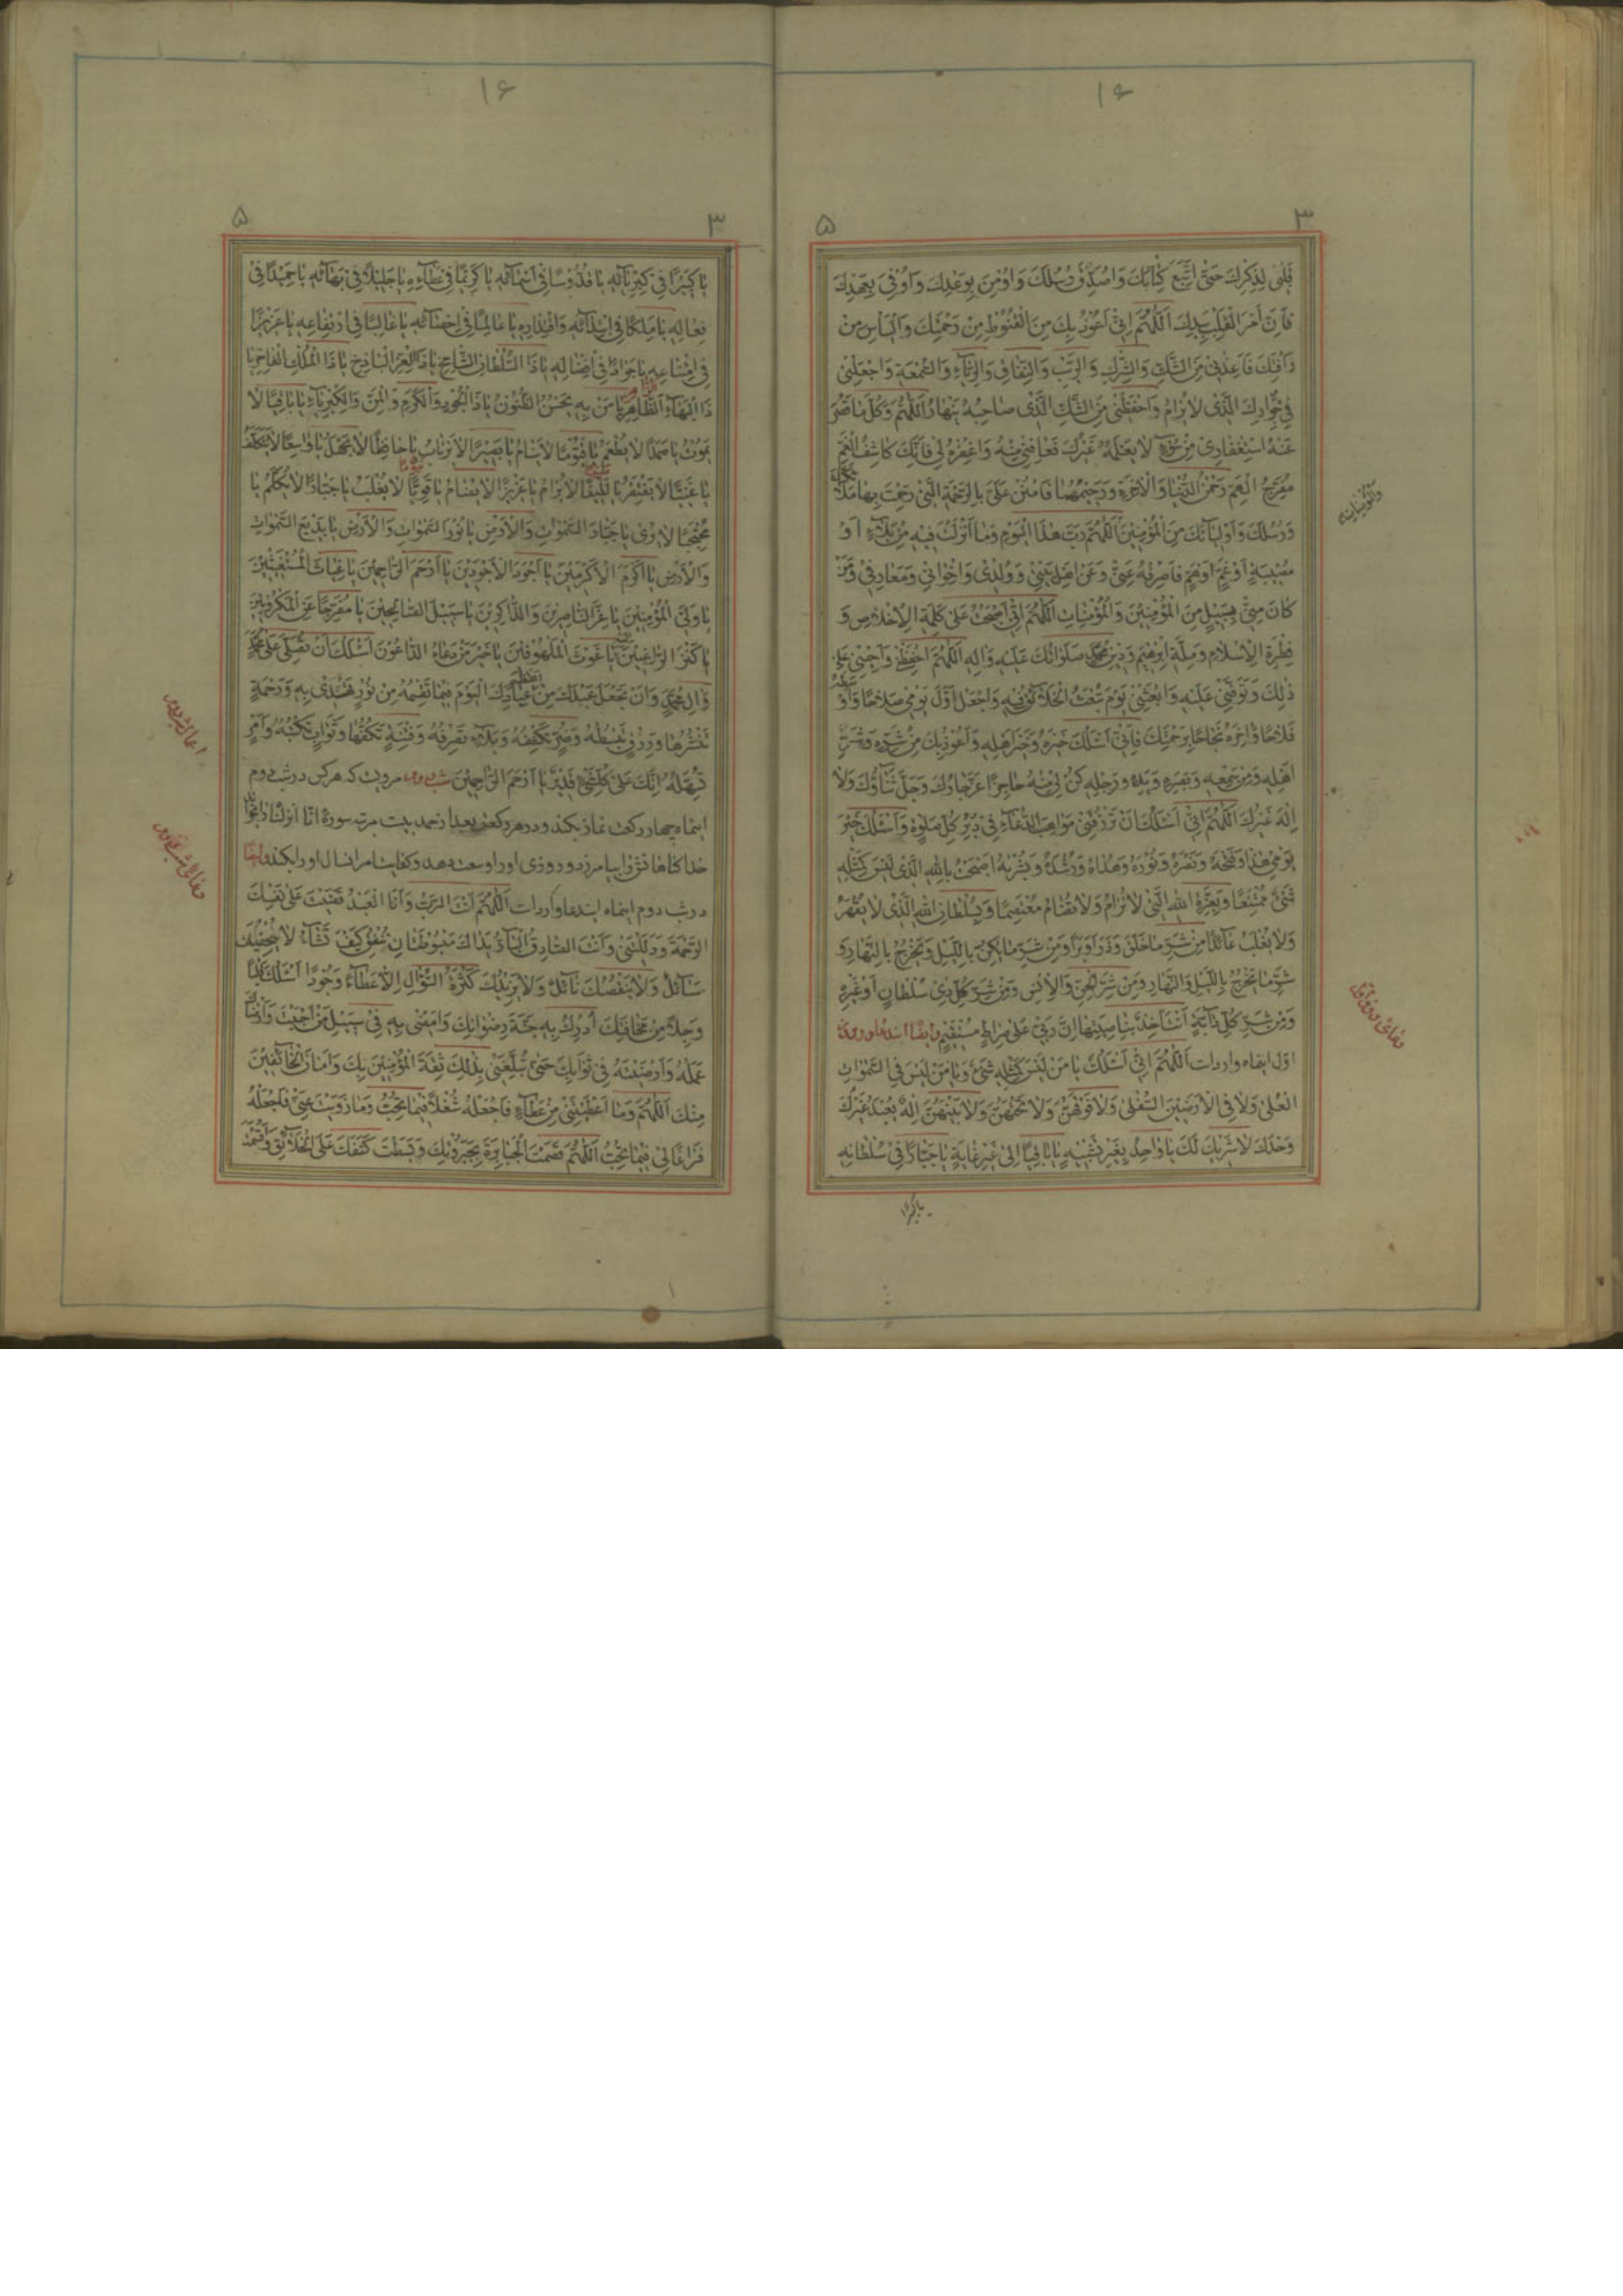 ١۶
٣
۵
قَلْبِي لِذِكْرِكَ حَتّىٰ اَتَّبِعَ كِتَابَكَ وَاُصَدِّقَ رُسُلَكَ وَاُومِنَ بِوَعْدِكَ وَاُوفِيَ بِعَهْدِكَ
فَاِنَّ اَمْرَ الْقَلْبِ بِيَدِكَ اَللّهُمَّ اِنّي اَعُوذُ بِكَ مِنَ الْقُنُوطِ مِنْ رَحْمَتِكَ وَالْيَأْسِ مِنْ
رَأْفَتِكَ فَاَعِذْنِي مِنَ الشَّكِّ وَالشِّرْكِ وَالرَّيْبِ وَالنِّفَاقِ وَالرِّيَاءِ وَالسُّمْعَةِ وَاجْعَلْنِي
فِي جِوَارِكَ الَّذِي لَا يُرَامُ وَاحْفَظْنِي مِنَ الشَّكِّ الَّذِي صَاحِبُهُ يُهَانُ اَللّهُمَّ وَكُلُّ مَا قَصُرَ
عَنْهُ اسْتِغْفَارِي مِنْ سُوءٍ لَا يَعْلَمُهُ غَيْرُكَ فَعَافِنِي مِنْهُ وَاغْفِرْهُ لِي فَاِنَّكَ كَاشِفُ الْغَمِّ
مُفَرِّجُ الْهَمِّ رَحْمٰنُ الدُّنْيَا وَالْاٰخِرَةِ وَرَحِيمُهُمَا فَامْنُنْ عَلَيَّ بِالرَّحْمَةِ الَّتِي رَحِمْتَ بِهَا مَلَائِكَتَكَ
وَرُسُلَكَ وَاَوْلِيَائَكَ مِنَ الْمُؤْمِنِينَ اَللّهُمَّ رَبَّ هٰذَا الْيَوْمِ وَمَا اَنْزَلْتَ فِيهِ مِنْ بَلَاءٍ اَوْ
مُصِيبَةٍ اَوْ غَمٍّ اَوْ هَمٍّ فَاصْرِفْهُ عَنّي وَعَنْ اَهْلِ بَيْتِي وَوُلْدِي وَاِخْوَانِي وَمَعَارِفِي وَمَنْ
كَانَ مِنّي بِسَبِيلٍ مِنَ الْمُؤْمِنِينَ وَالْمُؤْمِنَاتِ اَللّهُمَّ اِنّي اَصْبَحْتُ عَلىٰ كَلِمَةِ الْاِخْلَاصِ وَ
فِطْرَةِ الْاِسْلَامِ وَمِلَّةِ اِبْرٰهِيمَ وَدِينِ مُحَمَّدٍ صَلَوَاتُكَ عَلَيْهِ وَاٰلِهِ اَللّهُمَّ احْفَظْنِي وَاَحْيِنِي عَلىٰ
ذٰلِكَ وَتَوَفَّنِي عَلَيْهِ وَابْعَثْنِي يَوْمَ تَبْعَثُ الْخَلَائِقَ فِيهِ وَاجْعَلْ اَوَّلَ يَوْمِي صَلَاحًا وَاَوْسَطَهُ
فَلَاحًا وَاٰخِرَهُ نَجَاحًا بِرَحْمَتِكَ فَاِنّي اَسْئَلُكَ خَيْرَهُ وَخَيْرَ اَهْلِهِ وَاَعُوذُ بِكَ مِنْ شَرِّهِ وَشَرِّ
اَهْلِهِ وَمِنْ سَمْعِهِ وَبَصَرِهِ وَيَدِهِ وَرِجْلِهِ كُنْ لِي مِنْهُ حَاجِزًا عَزَّ جَارُكَ وَجَلَّ ثَنَاؤُكَ وَلَا
اِلٰهَ غَيْرُكَ اَللّهُمَّ اِنّي اَسْئَلُكَ اَنْ تَرْزُقَنِي مَوَاهِبَ الدُّعَاءِ فِي دُبُرِ كُلِّ صَلٰوةٍ وَاَسْئَلُكَ خَيْرَ
يَوْمِي هٰذَا وَفَتْحَهُ وَنَصْرَهُ وَنُورَهُ وَهُدَاهُ وَرُشْدَهُ وَبُشْرَاهُ اَصْبَحْتُ بِاللهِ الَّذِي لَيْسَ كَمِثْلِهِ
شَيْءٌ مُمْتَنِعًا وَبِعِزَّةِ اللهِ الَّتِي لَا تُرَامُ وَلَا تُضَامُ مُعْتَصِمًا وَبِسُلْطَانِ اللهِ الَّذِي لَا يُقْهَرُ
وَلَا يُغْلَبُ عَائِذًا مِنْ شَرِّ مَا خَلَقَ وَذَرَأَ وَبَرَأَ وَمِنْ شَرِّ مَا يَكِنُّ بِاللَّيْلِ وَيَخْرُجُ بِالنَّهَارِ وَ
شَرِّ مَا يَخْرُجُ بِاللَّيْلِ وَالنَّهَارِ وَمِنْ شَرِّ الْجِنِّ وَالْاِنْسِ وَمِنْ شَرِّ كُلِّ ذِي سُلْطَانٍ اَوْ غَيْرِهِ
وَمِنْ شَرِّ كُلِّ دَابَّةٍ اَنْتَ اٰخِذٌ بِنَاصِيَتِهَا اِنَّ رَبّي عَلىٰ صِرَاطٍ مُسْتَقِيمٍ وايضا اين دعا در روز
اول اين ماه وارد است اَللّهُمَّ اِنّي اَسْئَلُكَ يَا مَنْ لَيْسَ كَمِثْلِهِ شَيْءٌ وَيَا مَنْ لَيْسَ فِي السَّمٰوَاتِ
الْعُلىٰ وَلَا فِي الْاَرَضِينَ السُّفْلىٰ وَلَا فَوْقَهُنَّ وَلَا تَحْتَهُنَّ وَلَا بَيْنَهُنَّ اِلٰهٌ يُعْبَدُ غَيْرُكَ
وَحْدَكَ لَا شَرِيكَ لَكَ يَا وَاحِدُ بِغَيْرِ شَبِيهٍ يَا بَاقِيًا اِلىٰ غَيْرِ غَايَةٍ يَا جَبَّارًا فِي سُلْطَانِهِ
يا كبيرا
١۶
٣
۵
يَا كَبِيرًا فِي كِبْرِيَائِهِ يَا قُدُّوسًا فِي اَسْمَائِهِ يَا كَرِيمًا فِي عَطَائِهِ يَا جَلِيلًا فِي بَهَائِهِ يَا حَمِيدًا فِي
فِعَالِهِ يَا مَلِكًا فِي ابْتِدَائِهِ وَاقْتِدَارِهِ يَا عَالِمًا فِي اِحْصَائِهِ يَا غَالِبًا فِي ارْتِفَاعِهِ يَا عَزِيزًا
فِي امْتِنَاعِهِ يَا جَوَادًا فِي اِفْضَالِهِ يَا ذَا السُّلْطَانِ الشَّامِخِ يَا ذَا الْعِزِّ الْبَاذِخِ يَا ذَا الْمُلْكِ الْفَاخِرِ يَا
ذَا الْبَهَاءِ الظَّاهِرِ يَا مَنْ بِهِ يَحْسُنُ الظُّنُونُ يَا ذَا الْجُودِ وَالْكَرَمِ وَالْمَنِّ وَالْكِبْرِيَاءِ يَا بَاقِيًا لَا
يَمُوتُ يَا صَمَدًا لَا يُطْعَمُ يَا قَيُّومًا لَا يَنَامُ يَا بَصِيرًا لَا يَرْتَابُ يَا حَافِظًا لَا يَجْهَلُ يَا وَاسِعًا لَا يَتَكَلَّفُ
يَا غَنِيًّا لَا يَفْتَقِرُ يَا مَنِيعًا لَا يُرَامُ يَا عَزِيزًا لَا يُضَامُ يَا قَوِيًّا لَا يُغْلَبُ يَا جَبَّارًا لَا يُكَلَّمُ يَا
مُحْتَجِبًا لَا يُرىٰ يَا جَبَّارَ السَّمٰوَاتِ وَالْاَرْضِ يَا نُورَ السَّمٰوَاتِ وَالْاَرْضِ يَا بَدِيعَ السَّمٰوَاتِ
وَالْاَرْضِ يَا اَكْرَمَ الْاَكْرَمِينَ يَا اَجْوَدَ الْاَجْوَدِينَ يَا اَرْحَمَ الرَّاحِمِينَ يَا غِيَاثَ الْمُسْتَغِيثِينَ
يَا وَلِيَّ الْمُؤْمِنِينَ يَا عِزَّ النَّاصِرِينَ وَالذَّاكِرِينَ يَا سَبِيلَ الصَّالِحِينَ يَا مُفَرِّجًا عَنِ الْمَكْرُوبِينَ
يَا كَنْزَ الرَّاغِبِينَ يَا غَوْثَ الْمَلْهُوفِينَ يَا خَيْرَ مَنْ دَعَاهُ الدَّاعُونَ اَسْئَلُكَ اَنْ تُصَلِّيَ عَلىٰ مُحَمَّدٍ
وَاٰلِ مُحَمَّدٍ وَاَنْ تَجْعَلَ عَبْدَكَ مِنْ اَعْظَمِ عِبَادِكَ الْيَوْمَ فِيمَا تَقْسِمُهُ مِنْ نُورٍ تَهْدِي بِهِ وَرَحْمَةٍ
تَنْشُرُهَا وَرِزْقٍ تَبْسُطُهُ وَضُرٍّ تَكْشِفُهُ وَبَلَاءٍ تَصْرِفُهُ وَفِتْنَةٍ تَكُفُّهَا وَثَوَابٍ تَكْتُبُهُ وَاَمْرٍ
تُسَهِّلُهُ اِنَّكَ عَلىٰ كُلِّ شَيْءٍ قَدِيرٌ يَا اَرْحَمَ الرَّاحِمِينَ شب دوم مرويست كه هركس در شب دوم
اين ماه چهار ركعت نماز بكند و در هر ركعتى بعد از حمد بيست مرتبه سورهٔ انا انزلناه بخواند
خدا گناهانش را بيامرزد و روزى او را وسعت دهد و كفايت امر آنسال او را بكند وايضا
در شب دوم اين ماه اين دعا وارد است اَللّهُمَّ اَنْتَ الرَّبُّ وَاَنَا الْعَبْدُ قَضَيْتَ عَلىٰ نَفْسِكَ
الرَّحْمَةَ وَدَلَلْتَنِي وَاَنْتَ الصَّادِقُ الْبَارُّ يَدَاكَ مَبْسُوطَتَانِ تُنْفِقُ كَيْفَ تَشَاءُ لَا يُلْحِفُكَ
سَائِلٌ وَلَا يَنْقُصُكَ نَائِلٌ وَلَا يَزِيدُكَ كَثْرَةُ السُّؤَالِ اِلَّا عَطَاءً وَجُودًا اَسْئَلُكَ قَلْبًا
وَجِلًا مِنْ مَخَافَتِكَ اُدْرِكُ بِهِ جَنَّةَ رِضْوَانِكَ وَاَمْضِي بِهِ فِي سَبِيلِ مَنْ اَحْبَبْتَ وَاَرْضَاكَ
عَمَلُهُ وَاَرْضَيْتَهُ فِي ثَوَابِكَ حَتّىٰ تُبَلِّغَنِي بِذٰلِكَ ثِقَةَ الْمُؤْمِنِينَ بِكَ وَاَمَانَ الْخَائِفِينَ
مِنْكَ اَللّهُمَّ وَمَا اَعْطَيْتَنِي مِنْ عَطَاءٍ فَاجْعَلْهُ شُغْلًا فِيمَا تُحِبُّ وَمَا زَوَيْتَ عَنّي فَاجْعَلْهُ
فَرَاغًا لِي فِيمَا تُحِبُّ اَللّهُمَّ قَصَمْتَ الْجَبَابِرَةَ بِجَبَرُوتِكَ وَبَسَطْتَ كَنَفَكَ عَلَى الْخَلَائِقِ وَاَقْسَمْتَ